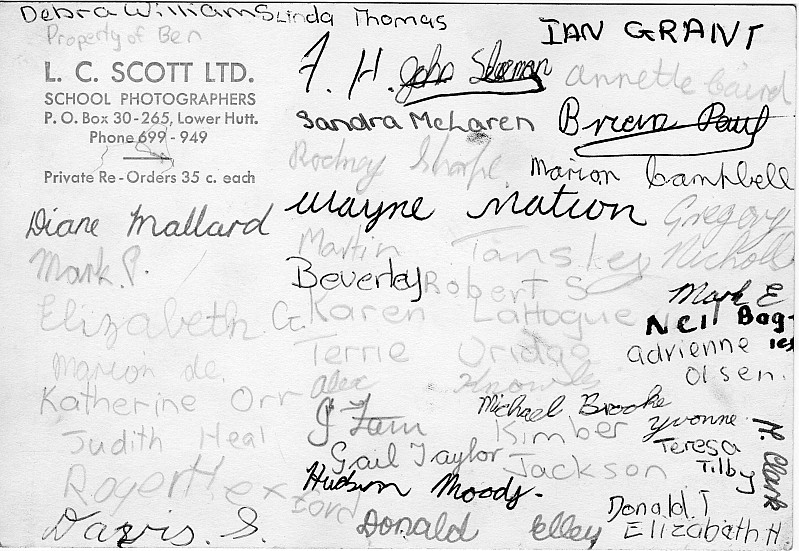 Debra Williams Linda Thomas
IAN GRANT
Property of Ben
L. C. SCOTT LTD.
SCHOOL PHOTOGRAPHERS
P. O. Box 30-265, Lower Hutt.
Phone 699-949
Private Re-Orders 35 c. each
F. H. John
Annette Caird
Sandra McLaren
Brian Paul
Rodney Sharpe
Marion Campbell
Diane Mallard
Wayne Mation
Gregory Nicholl
Martin Tanskey
Mark P.
Beverley
Robert S
Mark E
Elizabeth G.
Karen LaHogue
Neil Bagnies
Terrie Uridge
Adrienne Olsen.
Marion de.
Alex Knowles
Katherine Orr
Michael Brooke
J Fam
Kimber Jackson
Yvonne
Judith Heal
Gail Taylor
Teresa Tilby
H. Clark
Roger Hexford
Hudson Moody.
Donald. T
Davis. S.
Donald Elley
Elizabeth H.